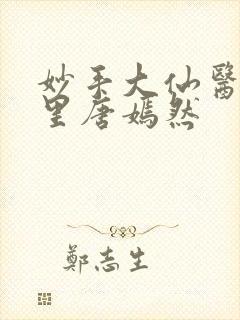 妙手大仙醫
里唐嫣然
鄭志生